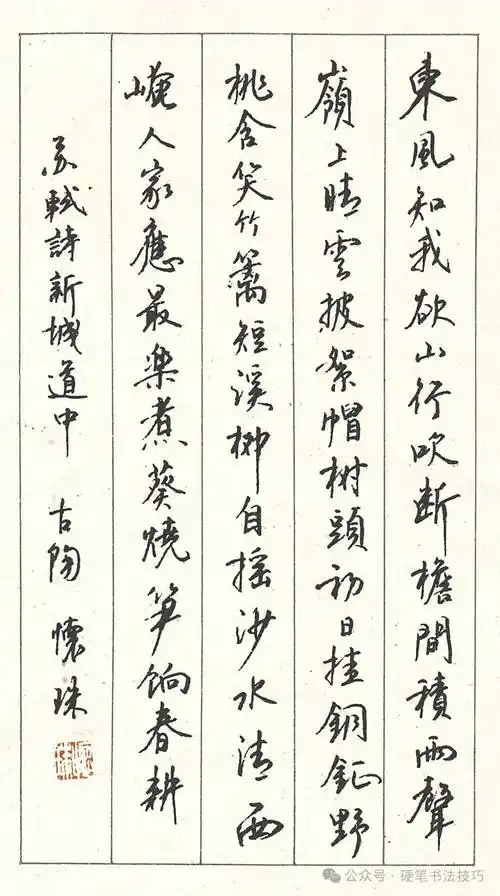 東風知我欲山行吹断檐間積雨聲
嶺上晴雲披絮帽树頭初日挂銅鉦野
桃含笑竹篱短溪柳自摇沙水清西
崦人家應最樂煮葵燒笋餉春耕
苏軾詩新城道中 古陶 懷珠
公众号·硬笔书法技巧